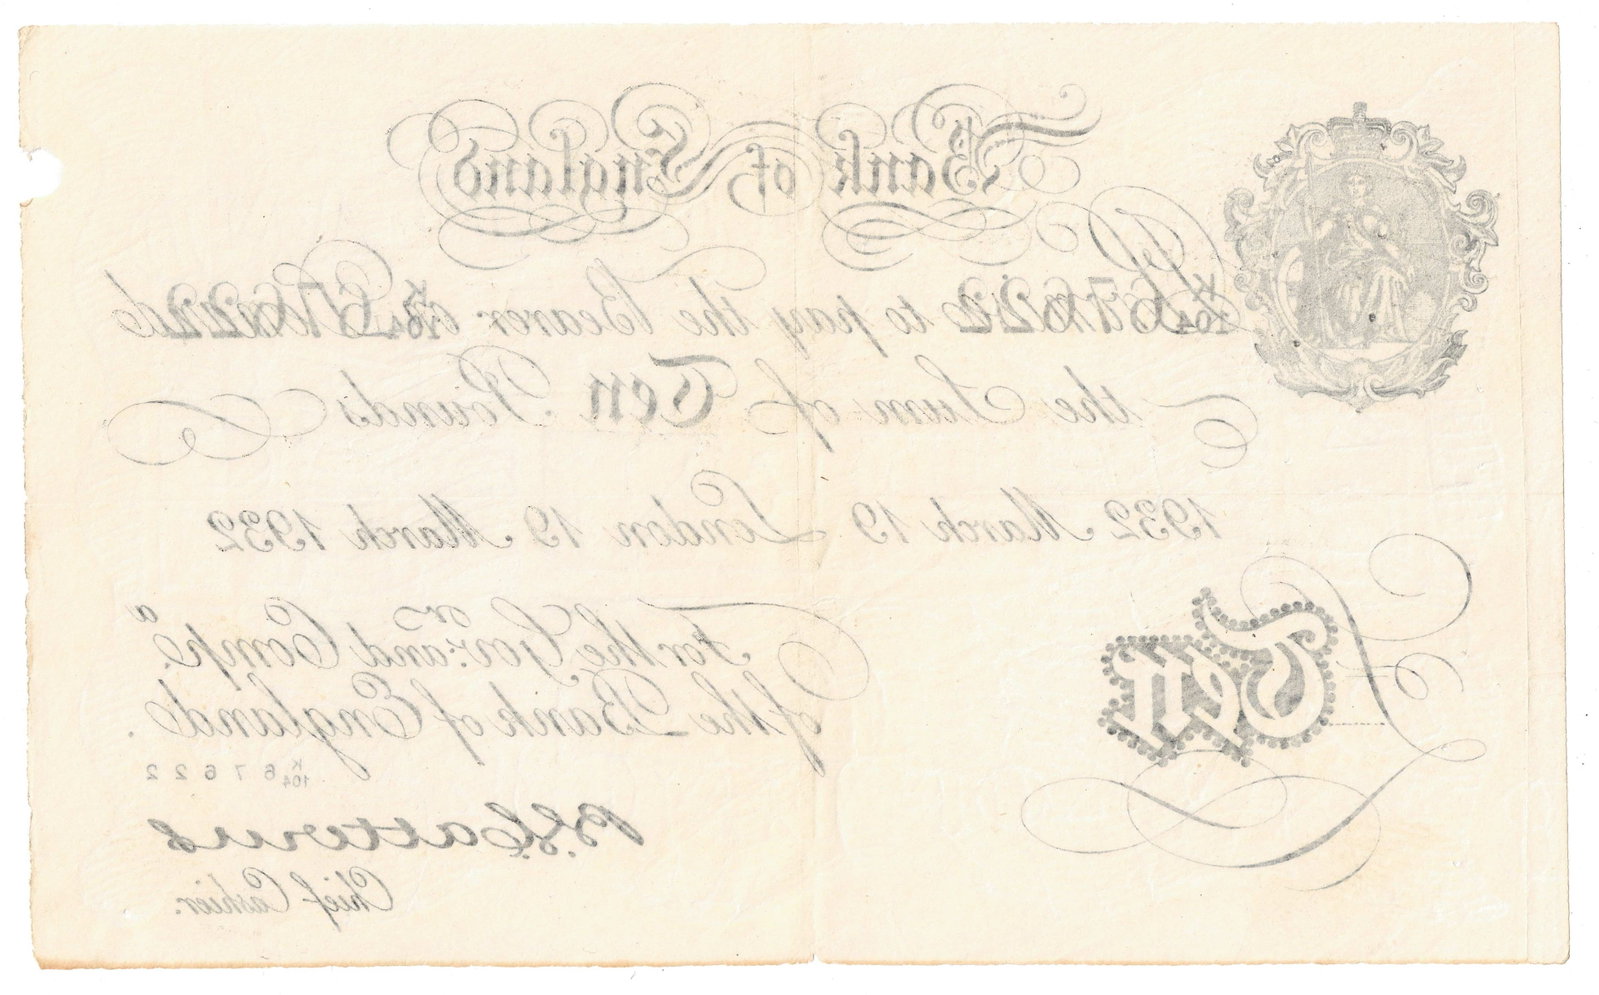 Bank of England
K/164 67622 to pay the Bearer K/164 67622
the Sum of Ten Pounds
1932 March 19 London 19 March 1932
For the Gov:or and Comp:a
of the Bank of England.
K/164 67622
Ten
B.G. Catterns
Chief Cashier.